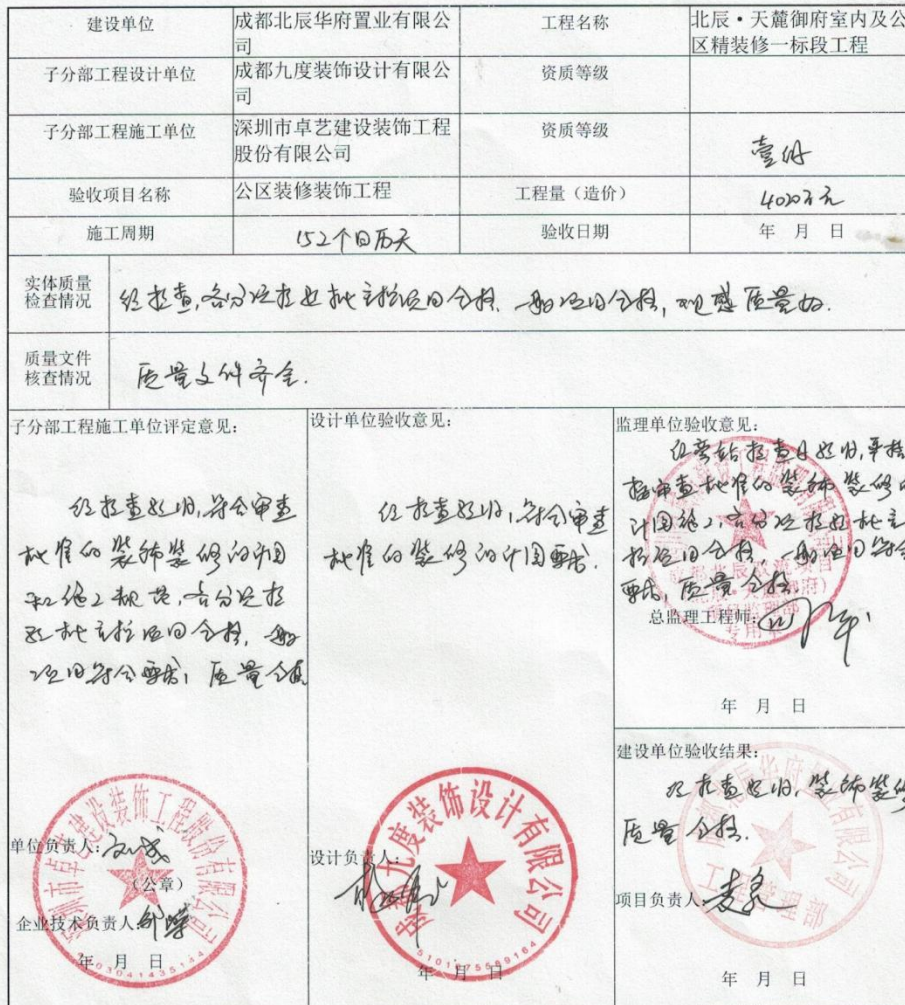 建设单位
成都北辰华府置业有限公
司
工程名称
北辰·天麓御府室内及公
区精装修一标段工程
子分部工程设计单位
成都九度装饰设计有限公
司
资质等级
子分部工程施工单位
深圳市卓艺建设装饰工程
股份有限公司
资质等级
壹级
验收项目名称
公区装修装饰工程
工程量（造价）
4020万元
施工周期
152个日历天
验收日期
年 月 日
实体质量
检查情况
经检查,各分项检验批主控项目合格.一般项目合格,观感质量好.
质量文件
核查情况
质量文件齐全.
子分部工程施工单位评定意见:
经检查验收,符合审查
批准的装饰装修设计图
和施工规范,各分项检
验批主控项目合格,一般
项目符合要求,质量合格
单位负责人:
（公章）
企业技术负责人:
年 月 日
深圳市卓艺建设装饰工程股份有限公司
设计单位验收意见:
经检查验收,符合审查
批准的装修设计图要求.
设计负责人:
年 月 日
成都九度装饰设计有限公司
监理单位验收意见:
检查及验收,严格
按审查批准的装饰装修设
计图施工,各分项检验批主
控项目合格,一般项目符合
要求,质量合格.
总监理工程师:
年 月 日
建设单位验收结果:
经检查验收,装饰装修
质量合格.
项目负责人:
年 月 日